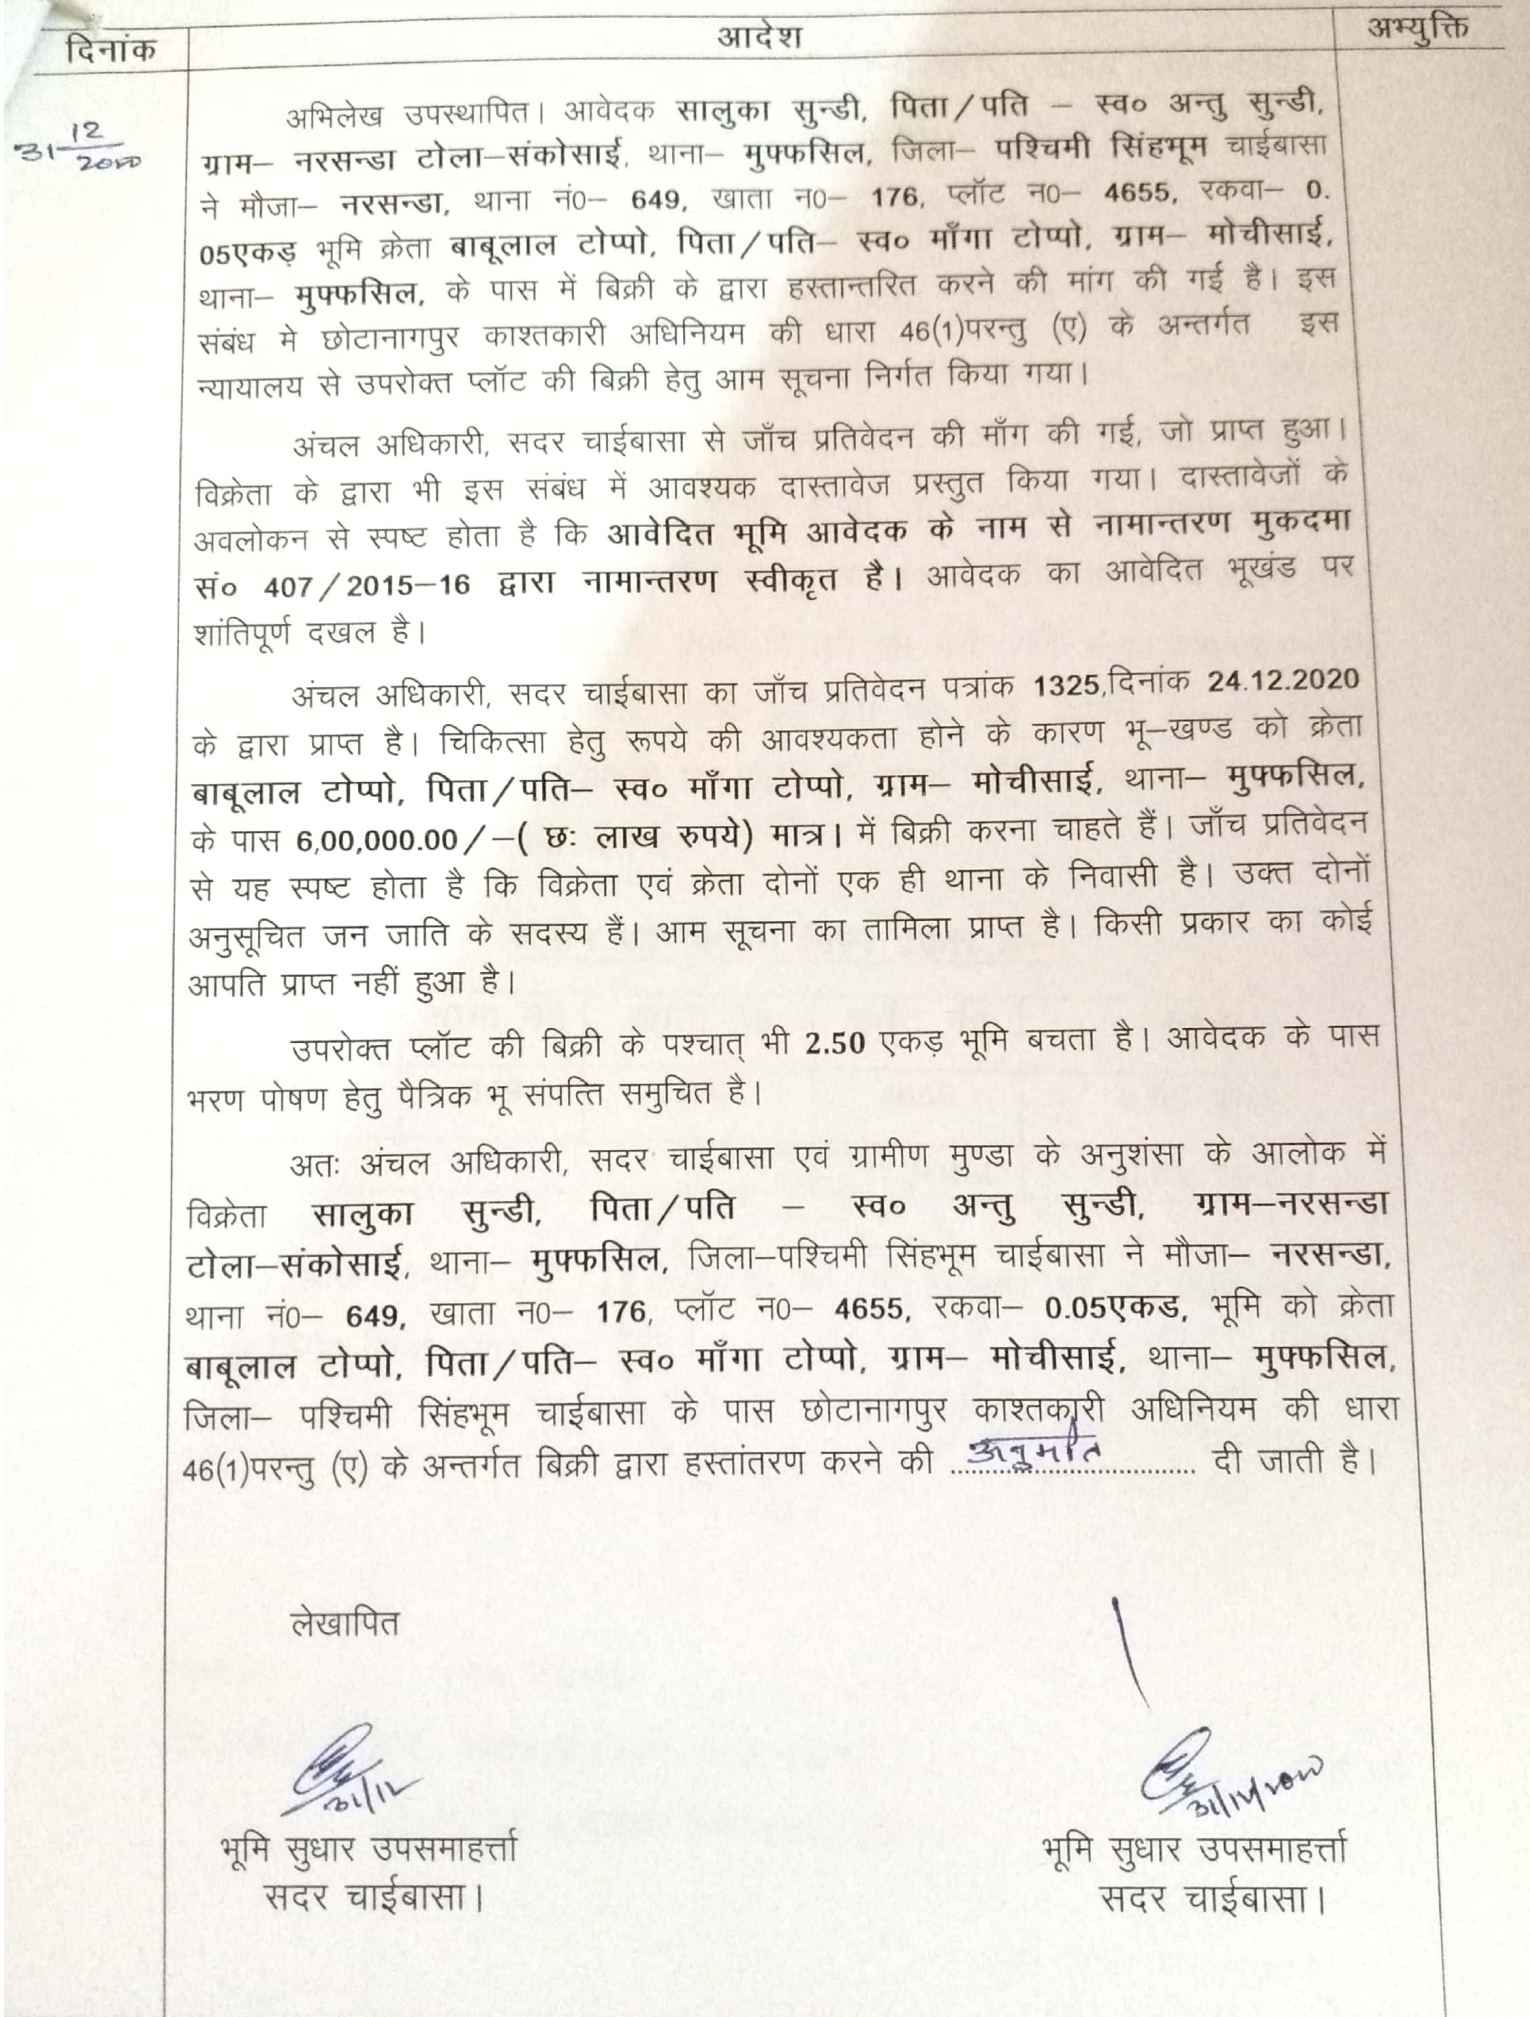 दिनांक आदेश अभ्युक्ति
31-12
2020
अभिलेख उपस्थापित। आवेदक सालुका सुन्डी, पिता/पति – स्व० अन्तु सुन्डी,
ग्राम– नरसन्डा टोला–संकोसाई, थाना– मुफ्फसिल, जिला– पश्चिमी सिंहभूम चाईबासा
ने मौजा– नरसन्डा, थाना नं0– 649, खाता न0– 176, प्लॉट न0– 4655, रकवा– 0.
05एकड़ भूमि क्रेता बाबूलाल टोप्पो, पिता/पति– स्व० माँगा टोप्पो, ग्राम– मोचीसाई,
थाना– मुफ्फसिल, के पास में बिक्री के द्वारा हस्तान्तरित करने की मांग की गई है। इस
संबंध मे छोटानागपुर काश्तकारी अधिनियम की धारा 46(1)परन्तु (ए) के अन्तर्गत इस
न्यायालय से उपरोक्त प्लॉट की बिक्री हेतु आम सूचना निर्गत किया गया।
अंचल अधिकारी, सदर चाईबासा से जाँच प्रतिवेदन की माँग की गई, जो प्राप्त हुआ।
विक्रेता के द्वारा भी इस संबंध में आवश्यक दास्तावेज प्रस्तुत किया गया। दास्तावेजों के
अवलोकन से स्पष्ट होता है कि आवेदित भूमि आवेदक के नाम से नामान्तरण मुकदमा
सं० 407/2015–16 द्वारा नामान्तरण स्वीकृत है। आवेदक का आवेदित भूखंड पर
शांतिपूर्ण दखल है।
अंचल अधिकारी, सदर चाईबासा का जाँच प्रतिवेदन पत्रांक 1325,दिनांक 24.12.2020
के द्वारा प्राप्त है। चिकित्सा हेतु रूपये की आवश्यकता होने के कारण भू–खण्ड को क्रेता
बाबूलाल टोप्पो, पिता/पति– स्व० माँगा टोप्पो, ग्राम– मोचीसाई, थाना– मुफ्फसिल,
के पास 6,00,000.00/–( छः लाख रुपये) मात्र। में बिक्री करना चाहते हैं। जाँच प्रतिवेदन
से यह स्पष्ट होता है कि विक्रेता एवं क्रेता दोनों एक ही थाना के निवासी है। उक्त दोनों
अनुसूचित जन जाति के सदस्य हैं। आम सूचना का तामिला प्राप्त है। किसी प्रकार का कोई
आपति प्राप्त नहीं हुआ है।
उपरोक्त प्लॉट की बिक्री के पश्चात् भी 2.50 एकड़ भूमि बचता है। आवेदक के पास
भरण पोषण हेतु पैत्रिक भू संपत्ति समुचित है।
अतः अंचल अधिकारी, सदर चाईबासा एवं ग्रामीण मुण्डा के अनुशंसा के आलोक में
विक्रेता सालुका सुन्डी, पिता/पति – स्व० अन्तु सुन्डी, ग्राम–नरसन्डा
टोला–संकोसाई, थाना– मुफ्फसिल, जिला–पश्चिमी सिंहभूम चाईबासा ने मौजा– नरसन्डा,
थाना नं0– 649, खाता न0– 176, प्लॉट न0– 4655, रकवा– 0.05एकड, भूमि को क्रेता
बाबूलाल टोप्पो, पिता/पति– स्व० माँगा टोप्पो, ग्राम– मोचीसाई, थाना– मुफ्फसिल,
जिला– पश्चिमी सिंहभूम चाईबासा के पास छोटानागपुर काश्तकारी अधिनियम की धारा
46(1)परन्तु (ए) के अन्तर्गत बिक्री द्वारा हस्तांतरण करने की अनुमति दी जाती है।
लेखापित
31/12 31/12/2020
भूमि सुधार उपसमाहर्त्ता भूमि सुधार उपसमाहर्त्ता
सदर चाईबासा। सदर चाईबासा।